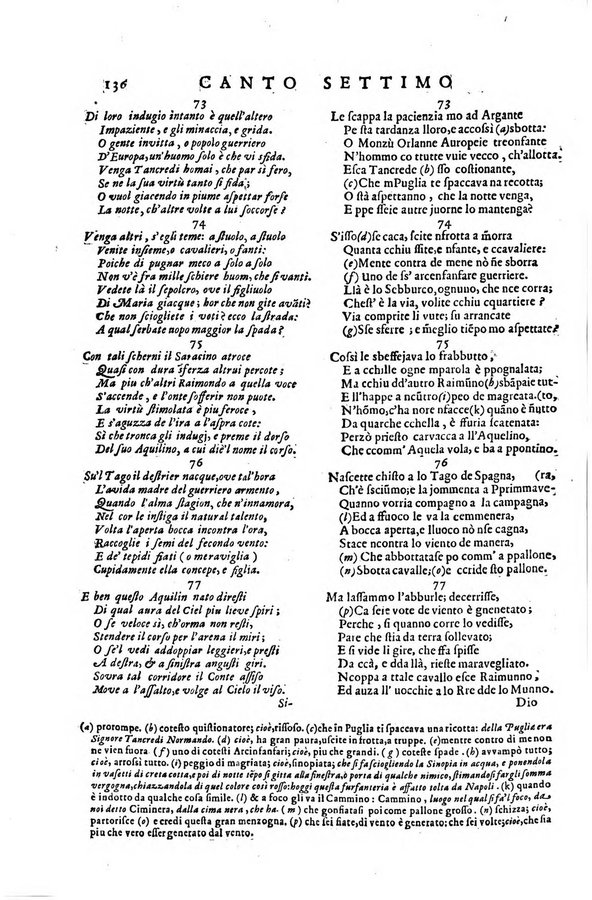 136 CANTO SETTIMO
73
Di loro indugio intanto è quell'altero
Impaziente, e gli minaccia, e grida.
O gente invitta, o popolo guerriero
D'Europa, un'huomo ſolo è che vi sfida.
Venga Tancredi homai, che par sì fero,
Se ne la ſua virtù tanto ſi fida;
O vuol giacendo in piume aſpettar forſe
La notte, ch'altre volte a lui ſoccorſe?
74
Venga altri, s'egli teme: a ſtuolo, a ſtuolo
Venite inſieme, o cavalieri, o fanti:
Poiche di pugnar meco a ſolo a ſolo
Non v'è fra mille ſchiere huom, che ſi vanti.
Vedete là il ſepolcro, ove il figliuolo
Di Maria giacque; hor che non gite avãti?
Che non ſciogliete i voti? ecco la ſtrada:
A qual ſerbate uopo maggior la ſpada?
75
Con tali ſcherni il Saracino atroce
Quaſi con dura sferza altrui percote;
Ma piu ch'altri Raimondo a quella voce
S'accende, e l'onte ſofferir non puote.
La virtù ſtimolata è piu feroce,
E s'aguzza de l'ira a l'aſpra cote:
Sì che tronca gli indugj, e preme il dorſo
Del ſuo Aquilino, a cui diè'l nome il corſo.
76
Su'l Tago il deſtrier nacque, ove tal'hora
L'avida madre del guerriero armento,
Quando l'alma ſtagion, che n'innamora,
Nel cor le inſtiga il natural talento,
Volta l'aperta bocca incontra l'ora,
Raccoglie i ſemi del fecondo vento:
E de' tepidi fiati (o meraviglia)
Cupidamente ella concepe, e figlia.
77
E ben queſto Aquilin nato direſti
Di qual aura del Ciel piu lieve ſpiri;
O ſe veloce sì, ch'orma non reſti,
Stendere il corſo per l'arena il miri;
O ſe'l vedi addoppiar leggieri, e preſti
A deſtra, & a ſiniſtra anguſti giri.
Sovra tal corridore il Conte aſſiſo
Move a l'aſſalto, e volge al Cielo il viſo.
Si-
73
Le ſcappa la pacienzia mo ad Argante
Pe ſtà tardanza lloro, e accoſsì (a) sbotta:
O Monzù Orlanne Auropeie treonfante
N'hommo co ttutte vuie vecco, ch'allotta.
Eſca Tancrede (b) ſſo coſtionante,
(c) Che mPuglia te ſpaccava na recotta;
O ſtà aſpettanno, che la notte venga,
E ppe ſſeie autre juorne lo mantenga?
74
S'iſſo (d) ſe caca, ſcite nfrotta a m̃orra
Quanta cchiu ſſite, e nfante, e ccavaliere:
(e) Mence contra de mene nò ñe sborra
(f) Uno de ſſ'arcenfanfare guerriere.
Llà è lo Sebburco, ognuno, che nc'è, corra:
Cheſt' è la via, volite cchiu cquartiere?
Vi compliſte lo vuto; ſu arrancate
(g) Sſe sferre; e m̃eglio tiẽpo mo aſpettate?
75
Coſsì le sbeffejava lo frabbutto,
E a cchille ogne mparola è ppognalata;
Ma cchiu dd'autro Raimũno (b) sbãpaie tut-
E llanneppe a ncũtro (i) peo de magreata. (to,
N'hõmo, c'ha nore nfacce (k) quãno è ñutto
Da quarche cchella, è ffuria ſcatenata:
Perzò prieſto carvacca a ll'Aquelino,
Che ccomm' Aquela vola, e ba a pponti͂no.
76
Naſcette chiſto a lo Tago de Spagna, (ra,
Ch'è ſciũmo; e la jommenta a Pprimmave-
Quanno vorria compagno a la campagna,
(l) Ed a ffuoco le va la cemmenera,
A bocca aperta, e lluocò nò ſe cagna,
Stace ncontro lo viento de manera:
(m) Che abbottataſe po comm' a ppallone,
(n) Sbotta cavalle; (o) e ccride ſto pallone.
77
Ma laſſammo l'abburle; decerriſſe,
(p) Ca ſeie vote de viento è gnenetato;
Perche, ſi quanno correre lo vediſſe,
Pare che ſtia da terra ſollevato;
E ſi vide li gire, che ffa ſpiſſo
Da ccà, e dda llà, rieſte maravegliato.
Ncoppa a ttale cavallo eſce Raimunno,
Ed auza ll' uocchie a lo Rre dde lo Munno.
Dio
(a) prorompe. (b) coteſto quiſtionatore; cioè, riſſoſo. (c) che in Puglia ti ſpaccava una ricotta: della Puglia era
Signore Tancredi Normando. (d) cioè, ha gran paura, uſcite in frotta, a truppe. (e) mentre contro di me non
ne vien fuora (f) uno di coteſti Arcinfanfari; cioè, piu che grandi. (g) coteſte ſpade. (h) avvampò tutto;
cioè, arroſsì tutto. (i) peggio di magriata; cioè, ſinopiata; che ſi fa ſciogliendo la Sinopia in acqua, e ponendola
in vaſetti di creta cotta, e poi di notte tẽpo ſi gitta alla fineſtra, ò porta di qualche nimico, ſtimandoſi fargli ſomma
vergogna, chiazzandola di quel colore così roſſo: hoggi queſta furfanteria è affatto tolta da Napoli. (k) quando
è indotto da qualche coſa ſimile. (l) & a foco gli va il Cammino: Cammino, luogo nel qual ſi fa'l foco, da-
noi detto Ciminera, dalla cima, che ne ha (m) che gonfiataſi poi come pallone groſſo. (n) ſchizza; cioè,
partoriſce (o) e credi queſta gran menzogna. (p) che ſei fiate, di vento è generato; che ſei volte; cioè, che ſia
piu che vero eſſer generato dal vento.